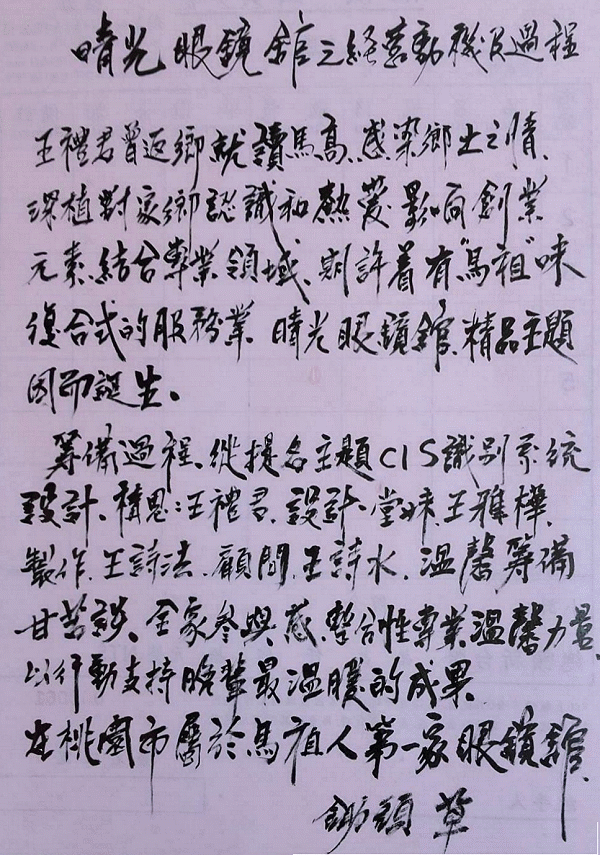 晴光眼鏡館之經營動機及過程
王禮君曾返鄉就讀馬高、感染鄉土之情、
深植對家鄉認識和熱愛、影响創業
元素、結合專業領域、則許着有"馬祖"味
復合式的服務業、晴光眼鏡館、精品主題
因而誕生。
籌備過程、從提名主題CIS識别系統
設計、構思：王禮君、設計、堂妹、王雅樺、
製作、王詩法、顧問、王詩水、溫馨籌備
甘苦談、全家參與感、整合性專業溫馨力量、
以行動支持晚輩最溫暖的成果
在桃園市屬於馬祖人第一家眼鏡館、
鋤頭 草